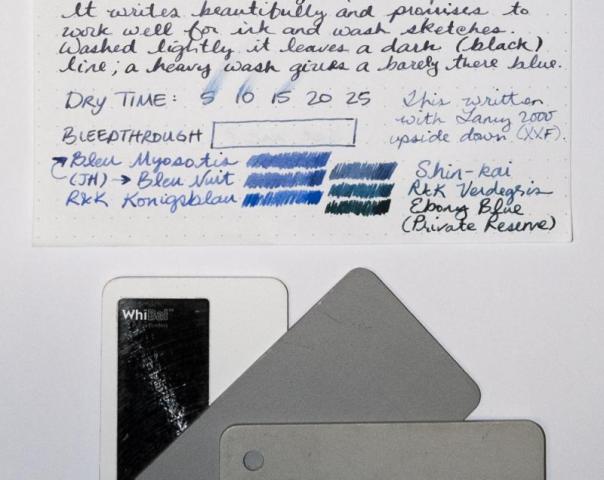 It writes beautifully and promises to
work well for ink and wash sketches.
Washed lightly it leaves a dark (black)
line; a heavy wash gives a barely there blue.
DRY TIME: 5 10 15 20 25
This written
with Lamy 2000
upside down (XXF).
BLEEDTHROUGH
Bleu Myosotis
(JH) → Bleu Nuit
R&K Konigsblau
Shin-kai
R&K Verdegris
Ebony Blue
(Private Reserve)
WhiBal™